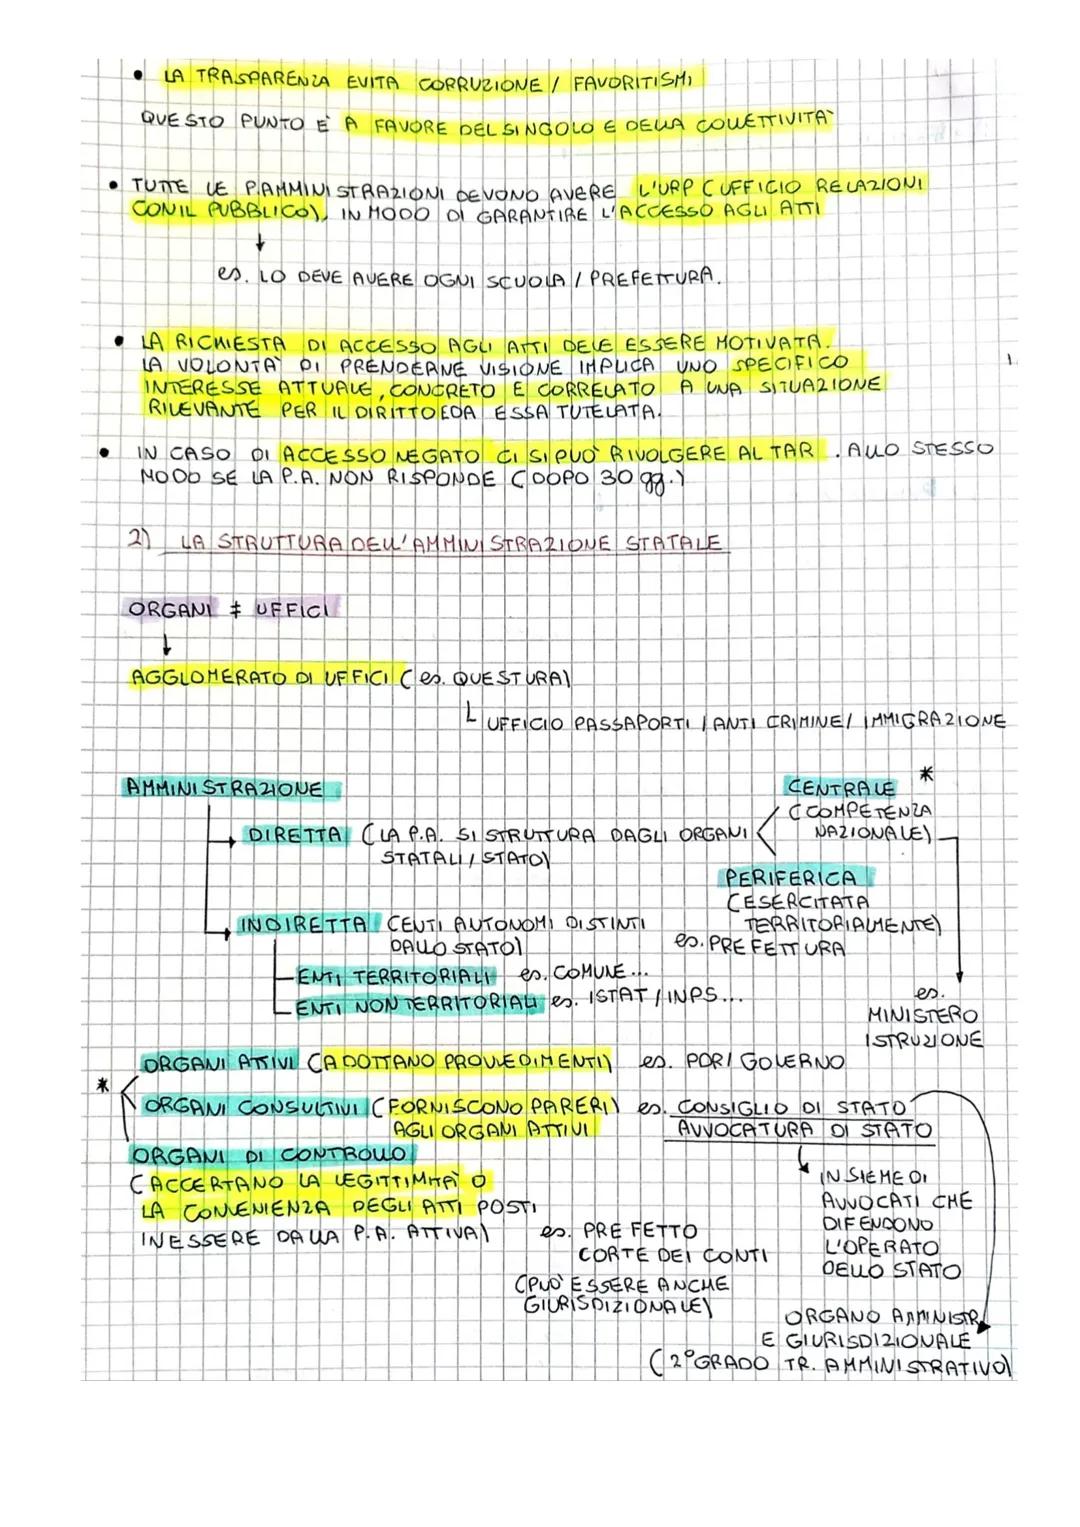 • LA TRASPARENZA EVITA CORRUZIONE / FAVORITISMI
QUESTO PUNTO E' A FAVORE DEL SINGOLO E DELLA COLLETTIVITA'
• TUTTE LE P.AMMINISTRAZIONI DEVONO AVERE L'URP (UFFICIO RELAZIONI
CON IL PUBBLICO), IN MODO DI GARANTIRE L'ACCESSO AGLI ATTI
↓
es. LO DEVE AVERE OGNI SCUOLA / PREFETTURA.
• LA RICHIESTA DI ACCESSO AGLI ATTI DEVE ESSERE MOTIVATA.
LA VOLONTA' DI PRENDERNE VISIONE IMPLICA UNO SPECIFICO
INTERESSE ATTUALE, CONCRETO E CORRELATO A UNA SITUAZIONE
RILEVANTE PER IL DIRITTO E DA ESSA TUTELATA.
• IN CASO DI ACCESSO NEGATO CI SI PUO' RIVOLGERE AL TAR. ALLO STESSO
MODO SE LA P.A. NON RISPONDE (DOPO 30 gg.)
2) LA STRUTTURA DELL'AMMINISTRAZIONE STATALE
ORGANI ≠ UFFICI
↓
AGGLOMERATO DI UFFICI (es. QUESTURA)
UFFICIO PASSAPORTI / ANTI CRIMINE / IMMIGRAZIONE
AMMINISTRAZIONE
CENTRALE *
(COMPETENZA
NAZIONALE)
DIRETTA (LA P.A. SI STRUTTURA DAGLI ORGANI
STATALI / STATO)
PERIFERICA
(ESERCITATA
TERRITORIALMENTE)
es. PREFETTURA
INDIRETTA (ENTI AUTONOMI DISTINTI
DALLO STATO)
ENTI TERRITORIALI es. COMUNE...
ENTI NON TERRITORIALI es. ISTAT / INPS...
es.
MINISTERO
ISTRUZIONE
* ORGANI ATTIVI (ADOTTANO PROVVEDIMENTI) es. PDR / GOVERNO
ORGANI CONSULTIVI (FORNISCONO PARERI) es. CONSIGLIO DI STATO
AGLI ORGANI ATTIVI AVVOCATURA DI STATO
ORGANI DI CONTROLLO
(ACCERTANO LA LEGITTIMITA' O
LA CONVENIENZA DEGLI ATTI POSTI
IN ESSERE DALLA P.A. ATTIVA)
es. PREFETTO
CORTE DEI CONTI
(PUO' ESSERE ANCHE
GIURISDIZIONALE)
INSIEME DI
AVVOCATI CHE
DIFENDONO
L'OPERATO
DELLO STATO
ORGANO AMMINISTR.
E GIURISDIZIONALE
(2° GRADO TR. AMMINISTRATIVO)